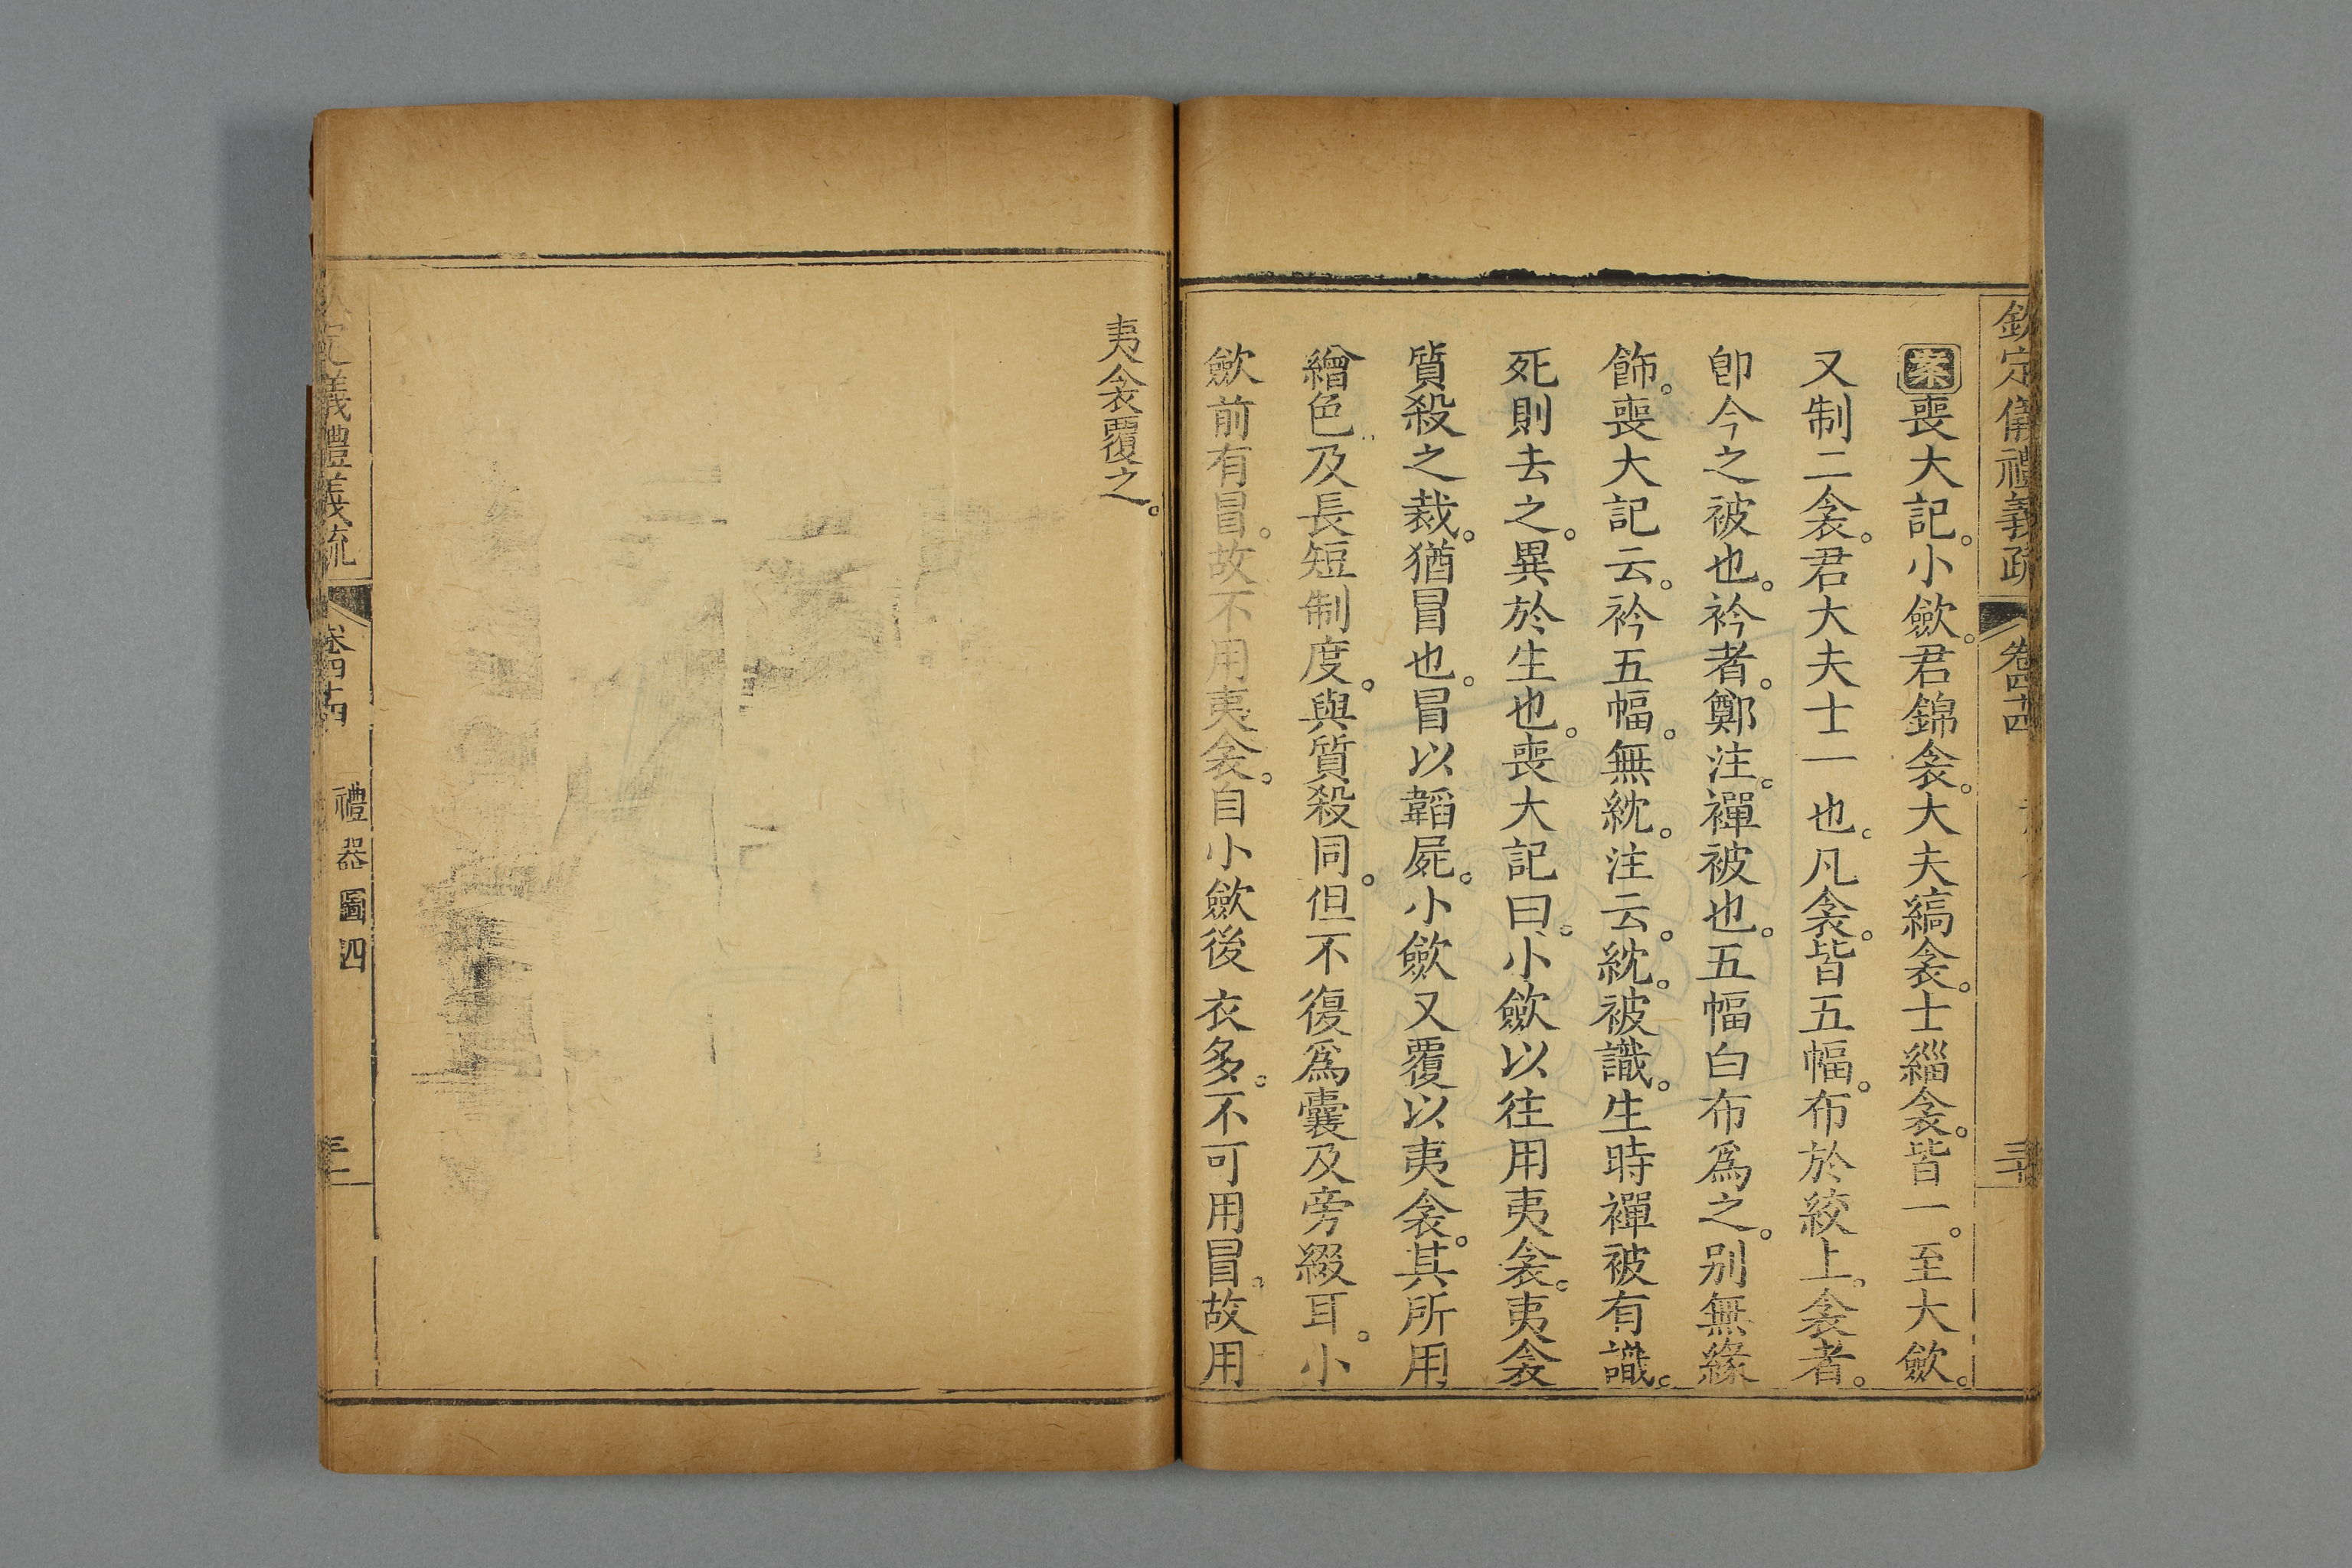 欽定儀禮義疏 卷四十四
案喪大記。小歛。君錦衾。大夫縞衾。士緇衾。皆一。至大歛。
又制二衾。君大夫士一也。凡衾。皆五幅。布於絞上。衾者。
卽今之被也。衿者。鄭注。襌被也。五幅白布爲之。别無緣
飾。喪大記云。衿五幅。無紞。注云。紞。被識。生時襌被有識。
死則去之。異於生也。喪大記曰。小歛以往用夷衾。夷衾
質殺之裁。猶冒也。冒以韜屍。小歛又覆以夷衾。其所用
繒色。及長短制度。與質殺同。但不復爲囊及旁綴耳。小
歛前有冒。故不用夷衾。自小歛後衣多。不可用冒。故用
夷衾覆之。
定儀禮義疏 卷四十四 禮器圖四